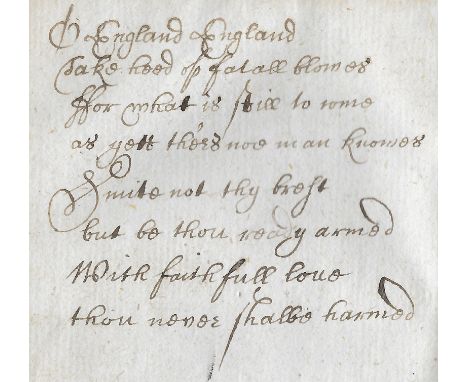 O England England
Take heed of fatall blowes
ffor what is still to come
as yett thers noe man knowes
Smite not thy brest
but be thou ready armed
With faithfull love
thou never shalbe harmed